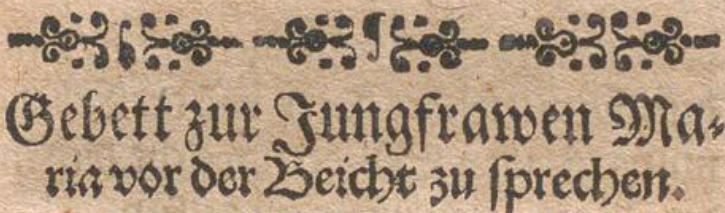 Gebett zur Jungfrawen Ma⸗
ria vor der Beicht zu ſprechen.